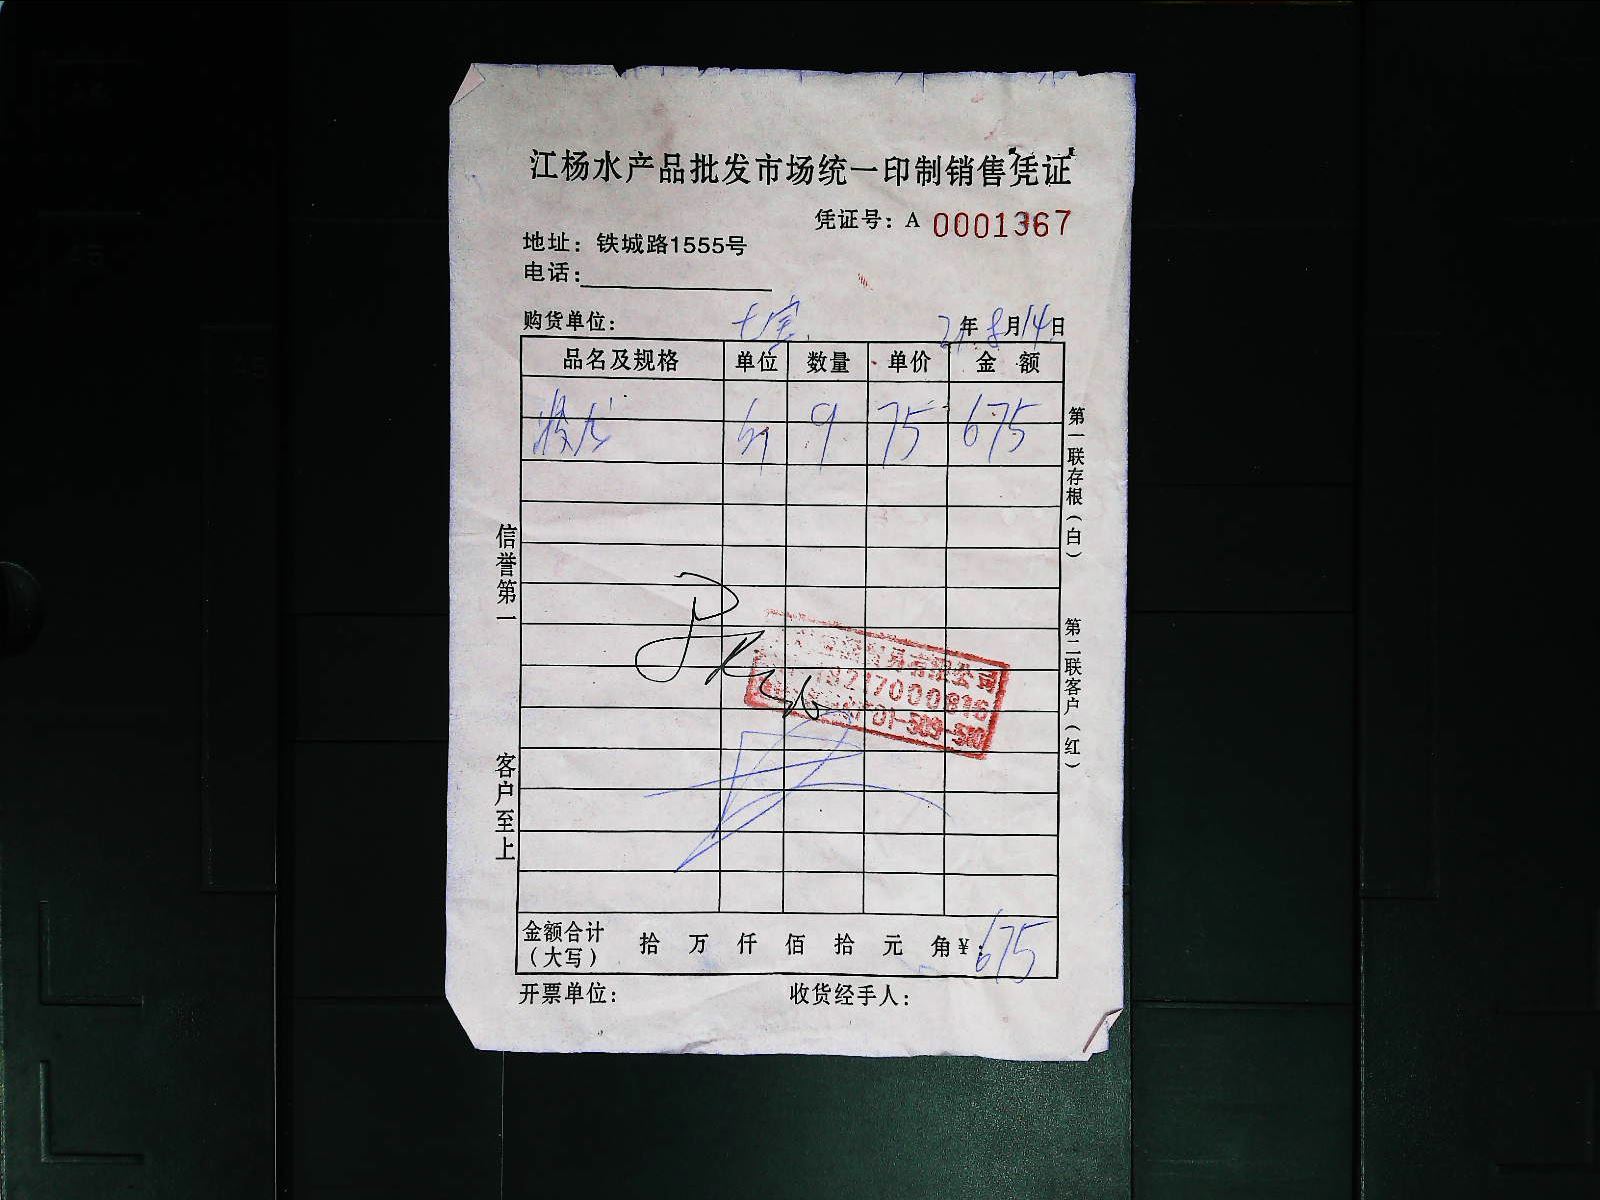 江杨水产品批发市场统一印制销售凭证
凭证号：A 0001367
地址：铁城路1555号
电话：
购货单位：七宝 21年8月14日
品名及规格 单位 数量 单价 金额
斤 9 75 675
信誉第一
客户至上
第一联存根（白）
第二联客户（红）
贸易有限公司
18217000816
01-509-510
金额合计（大写） 拾 万 仟 佰 拾 元 角 ¥：675
开票单位： 收货经手人：